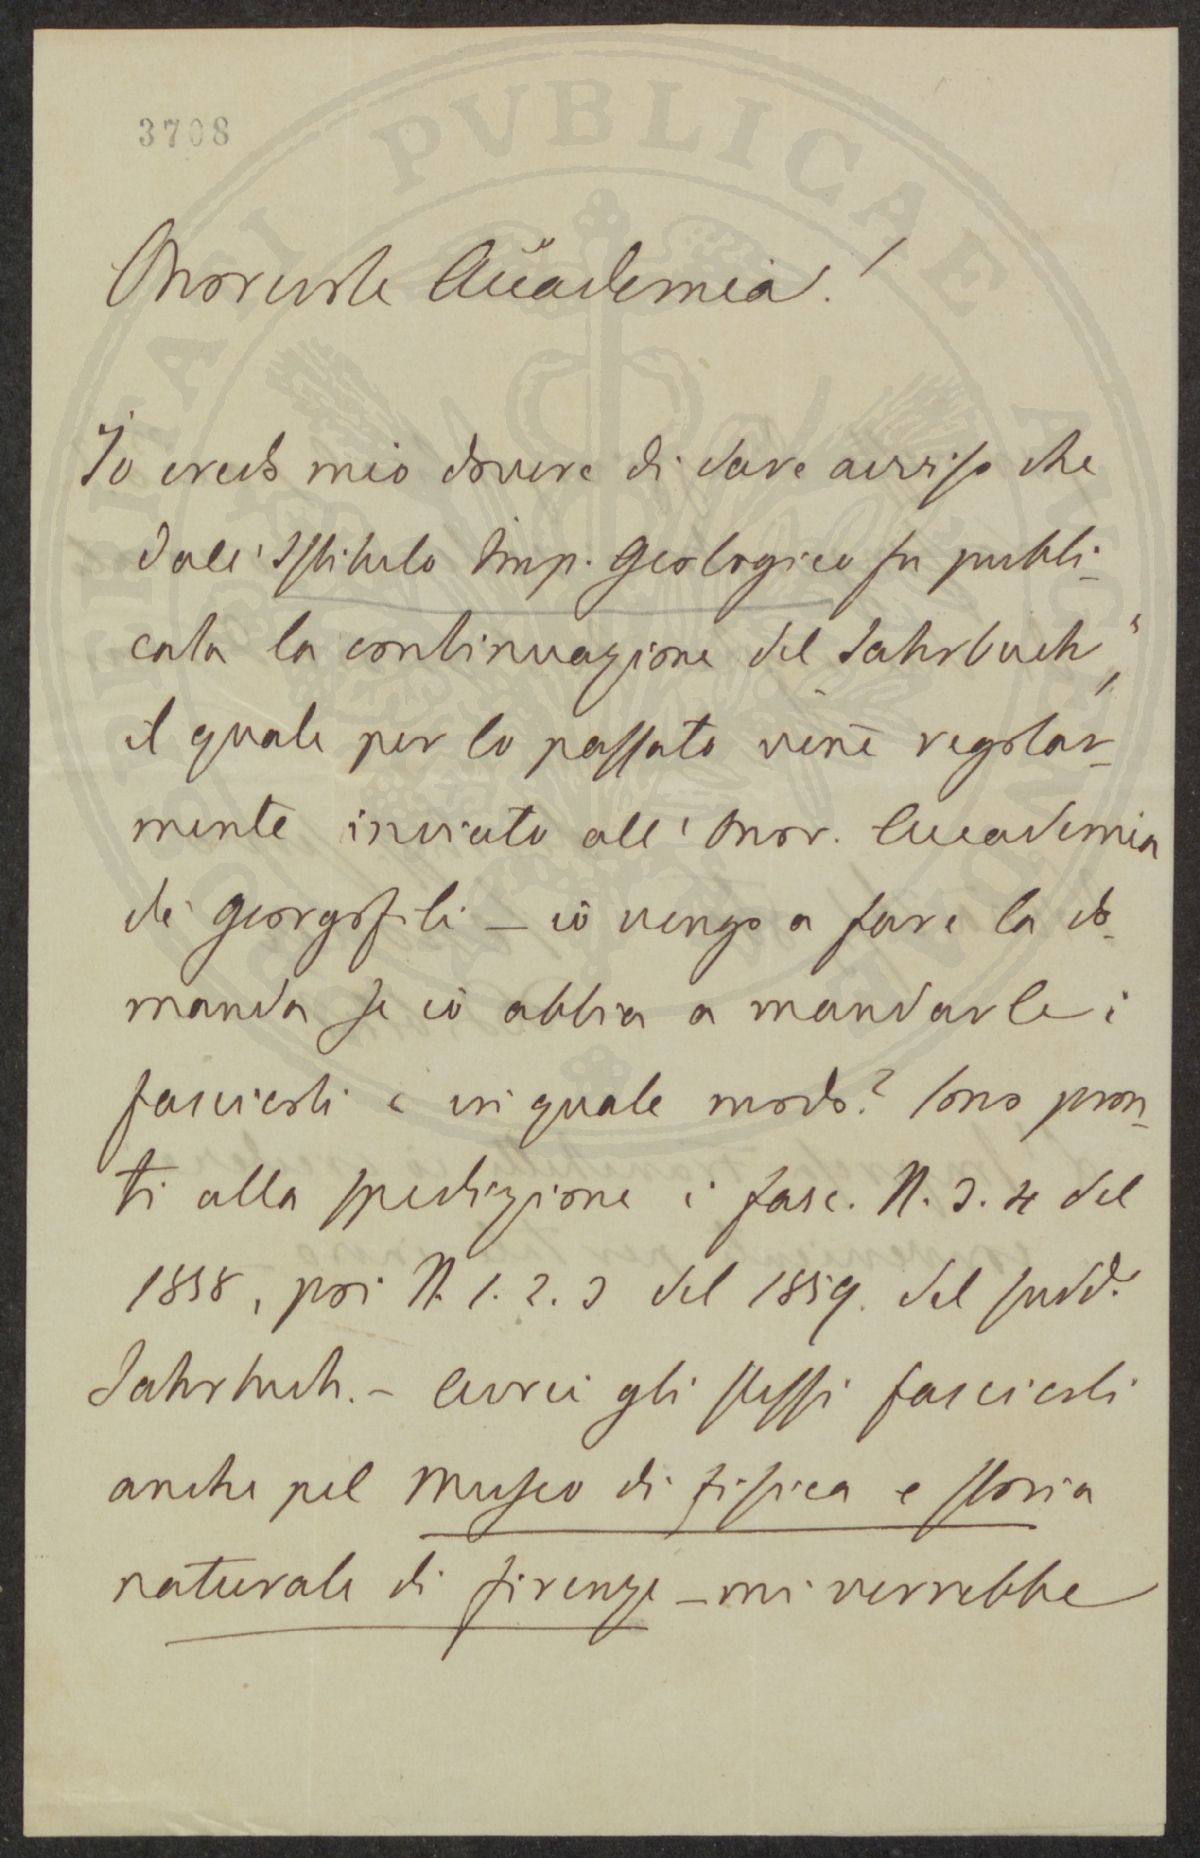 3708
Onorevole Accademia!
Io credo mio dovere di dare avviso che
dall'Istituto Imp. Geologico fu publi-
cata la continuazione del Jahrbuch,
il quale per lo passato venē regolar-
mente inviato all'Onor. Accademia
dei Georgofili – io vengo a fare la do-
manda se io abbia a mandarle i
fascicoli e in quale modo? Sono pron-
ti alla spedizione i fasc. N. 3. 4 del
1858, poi N. 1. 2. 3 del 1859. del sudd.
Jahrbuch. – Avrei gli stessi fascicoli
anche pel Museo di fisica e storia
naturale di Firenze – mi verrebbe
PUBLICAE